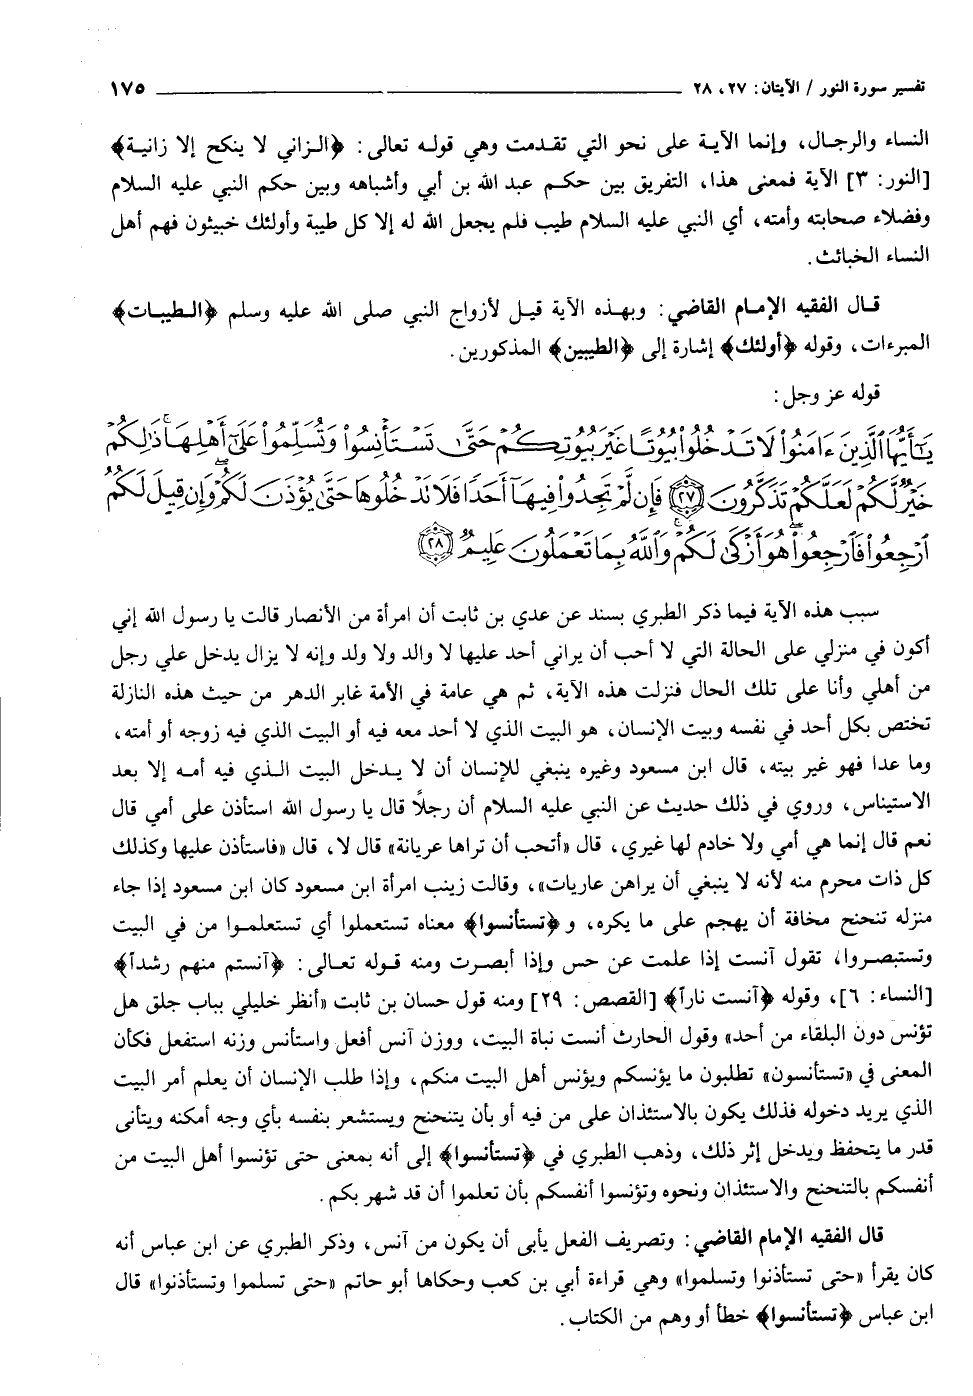 تفسير سورة النور / الآيتان: ٢٧، ٢٨ ١٧٥
النساء والرجال، وإنما الآية على نحو التي تقدمت وهي قوله تعالى: ﴿الزاني لا ينكح إلا زانية﴾
[النور: ٣] الآية فمعنى هذا، التفريق بين حكم عبد الله بن أبي وأشباهه وبين حكم النبي عليه السلام
وفضلاء صحابته وأمته، أي النبي عليه السلام طيب فلم يجعل الله له إلا كل طيبة وأولئك خبيثون فهم أهل
النساء الخبائث.
قال الفقيه الإمام القاضي: وبهذه الآية قيل لأزواج النبي صلى الله عليه وسلم ﴿الطيبات﴾
المبرءات، وقوله ﴿أولئك﴾ إشارة إلى ﴿الطيبين﴾ المذكورين.
قوله عز وجل:
يَٰٓأَيُّهَا ٱلَّذِينَ ءَامَنُوا۟ لَا تَدْخُلُوا۟ بُيُوتًا غَيْرَ بُيُوتِكُمْ حَتَّىٰ تَسْتَأْنِسُوا۟ وَتُسَلِّمُوا۟ عَلَىٰٓ أَهْلِهَا ۚ ذَٰلِكُمْ
خَيْرٌ لَّكُمْ لَعَلَّكُمْ تَذَكَّرُونَ ٢٧ فَإِن لَّمْ تَجِدُوا۟ فِيهَآ أَحَدًا فَلَا تَدْخُلُوهَا حَتَّىٰ يُؤْذَنَ لَكُمْ ۖ وَإِن قِيلَ لَكُمُ
ٱرْجِعُوا۟ فَٱرْجِعُوا۟ ۖ هُوَ أَزْكَىٰ لَكُمْ ۚ وَٱللَّهُ بِمَا تَعْمَلُونَ عَلِيمٌ ٢٨
سبب هذه الآية فيما ذكر الطبري بسند عن عدي بن ثابت أن امرأة من الأنصار قالت يا رسول الله إني
أكون في منزلي على الحالة التي لا أحب أن يراني أحد عليها لا والد ولا ولد وإنه لا يزال يدخل علي رجل
من أهلي وأنا على تلك الحال فنزلت هذه الآية، ثم هي عامة في الأمة غابر الدهر من حيث هذه النازلة
تختص بكل أحد في نفسه وبيت الإنسان، هو البيت الذي لا أحد معه فيه أو البيت الذي فيه زوجه أو أمته،
وما عدا فهو غير بيته، قال ابن مسعود وغيره ينبغي للإنسان أن لا يدخل البيت الذي فيه أمه إلا بعد
الاستيناس، وروي في ذلك حديث عن النبي عليه السلام أن رجلاً قال يا رسول الله استأذن على أمي قال
نعم قال إنما هي أمي ولا خادم لها غيري، قال «أتحب أن تراها عريانة» قال لا، قال «فاستأذن عليها وكذلك
كل ذات محرم منه لأنه لا ينبغي أن يراهن عاريات»، وقالت زينب امرأة ابن مسعود كان ابن مسعود إذا جاء
منزله تنحنح مخافة أن يهجم على ما يكره، و ﴿تستأنسوا﴾ معناه تستعملوا أي تستعلموا من في البيت
وتستبصروا، تقول آنست إذا علمت عن حس وإذا أبصرت ومنه قوله تعالى: ﴿آنستم منهم رشداً﴾
[النساء: ٦]، وقوله ﴿آنست ناراً﴾ [القصص: ٢٩] ومنه قول حسان بن ثابت «أنظر خليلي بباب جلق هل
تؤنس دون البلقاء من أحد» وقول الحارث أنست نباة البيت، ووزن آنس أفعل واستأنس وزنه استفعل فكأن
المعنى في «تستأنسون» تطلبون ما يؤنسكم ويؤنس أهل البيت منكم، وإذا طلب الإنسان أن يعلم أمر البيت
الذي يريد دخوله فذلك يكون بالاستئذان على من فيه أو بأن يتنحنح ويستشعر بنفسه بأي وجه أمكنه ويتأنى
قدر ما يتحفظ ويدخل إثر ذلك، وذهب الطبري في ﴿تستأنسوا﴾ إلى أنه بمعنى حتى تؤنسوا أهل البيت من
أنفسكم بالتنحنح والاستئذان ونحوه وتؤنسوا أنفسكم بأن تعلموا أن قد شهر بكم.
قال الفقيه الإمام القاضي: وتصريف الفعل يأبى أن يكون من آنس، وذكر الطبري عن ابن عباس أنه
كان يقرأ «حتى تستأذنوا وتسلموا» وهي قراءة أبي بن كعب وحكاها أبو حاتم «حتى تسلموا وتستأذنوا» قال
ابن عباس ﴿تستأنسوا﴾ خطأ أو وهم من الكتاب.